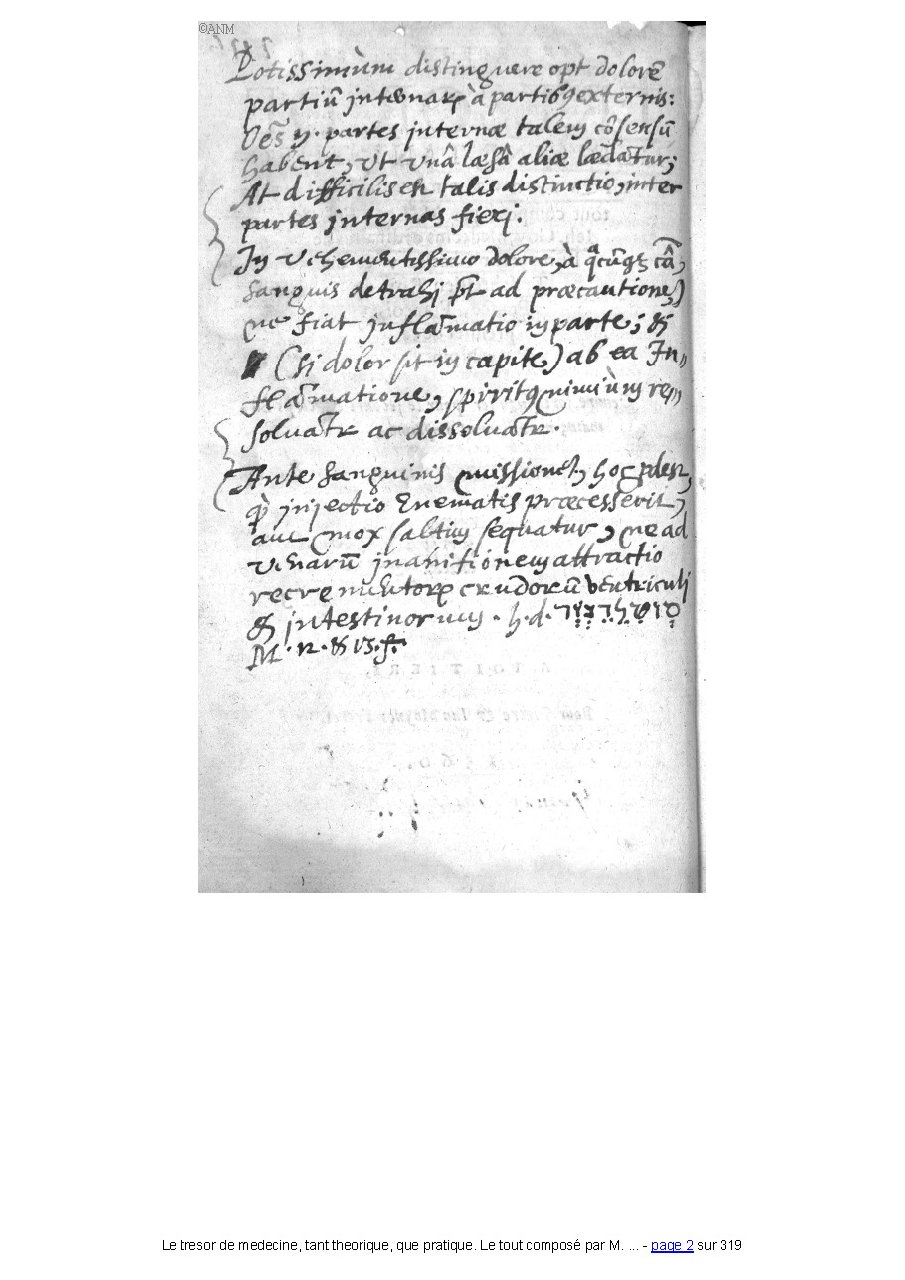 ©ANM
Potissimùm distinguere opt dolorē
partiū internarꝝ à partibꝰ externis:
Oēs n. partes internæ talem cōsensū
habent, ut unâ læsâ aliæ lædātur;
At difficilis est talis distinctio, inter
partes internas fieri.
In vehementissimo dolore, à cā,
sanguis detrahi pt ad præcautionē,
ne fiat inflāmatio in parte; &
(si dolor sit in capite) ab ea In=
flāmatione, spiritꝰ nimiùm re=
soluātr ac dissoluātr.
Ante sanguinis missionē, hoc
injectio Enematis præcesserit,
aut mox saltim sequatur, ne ad
venarū inanitionem attractio
recrementorꝝ crudorū ventriculi
& intestinorum. h.d.
M. n. & 13. f.
Le tresor de medecine, tant theorique, que pratique. Le tout composé par M. ... - page 2 sur 319